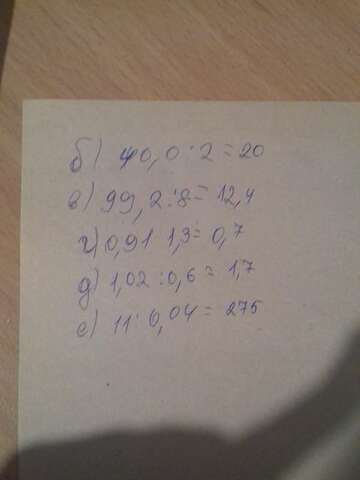 б) 40,0:2=20
в) 99,2:8=12,4
г) 0,91 1,3=0,7
д) 1,02:0,6=1,7
е) 11:0,04=275